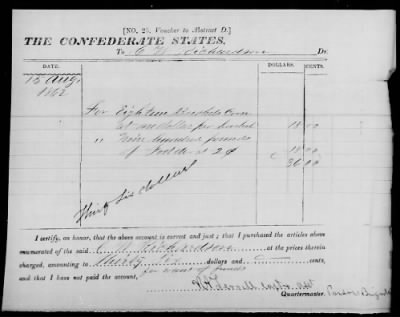 [NO. 25. Voucher to Abstract D.]
THE CONFEDERATE STATES,
To Richardson Dr.
DATE. DOLLARS. CENTS.
15 Aug
1862
For Eighteen Bushels Corn
at one dollar per bushel 18 00
" Nine hundred pounds
of Fodder at 2¢ 18 00
36 00
Thirty six dollars
I certify, on honor, that the above account is correct and just; that I purchased the articles above
enumerated of the said Richardson at the prices therein
charged, amounting to Thirty Six dollars and cents,
and that I have not paid the account, for want of funds
Quartermaster.